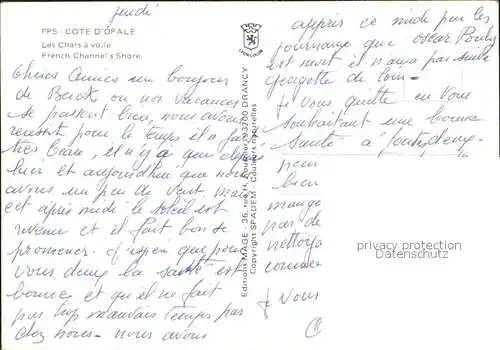 jeudi
PPS - COTE D'OPALE
Les Chars à voile
French Channel's Shore.
Chères Amies un bonjour
de Berck ou nos vacances
se passent bien, nous avons
pour le temps il a fait
très beau, il n'y a que depuis
hier et aujourd'hui que nous
avons un peu de vent. Mais
cet après midi le soleil est
revenu et il fait bon se
promener. J'espère que pour
vous deux la santé est
bonne et qu'il ne fait
pas trop mauvais temps par
chez nous - nous avons
Editions MAGE - 36, rue H. 93700 DRANCY
Copyright SPADEM - Couleurs naturelles
appris ce midi par les
journaux que oscar Pouly
est mort il n'aura pas
Georgette de
Je vous quitte en vous
souhaitant une bonne
santé - à toutes deux.
nous
bien
mangé
pas de
nettoya
comme
Je Vous
privacy protection
watermark